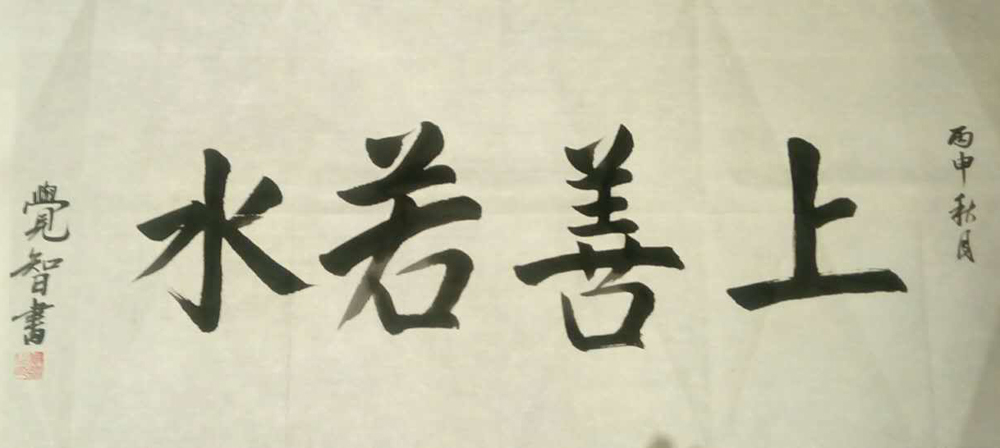 丙申秋月
上善若水
覺智書